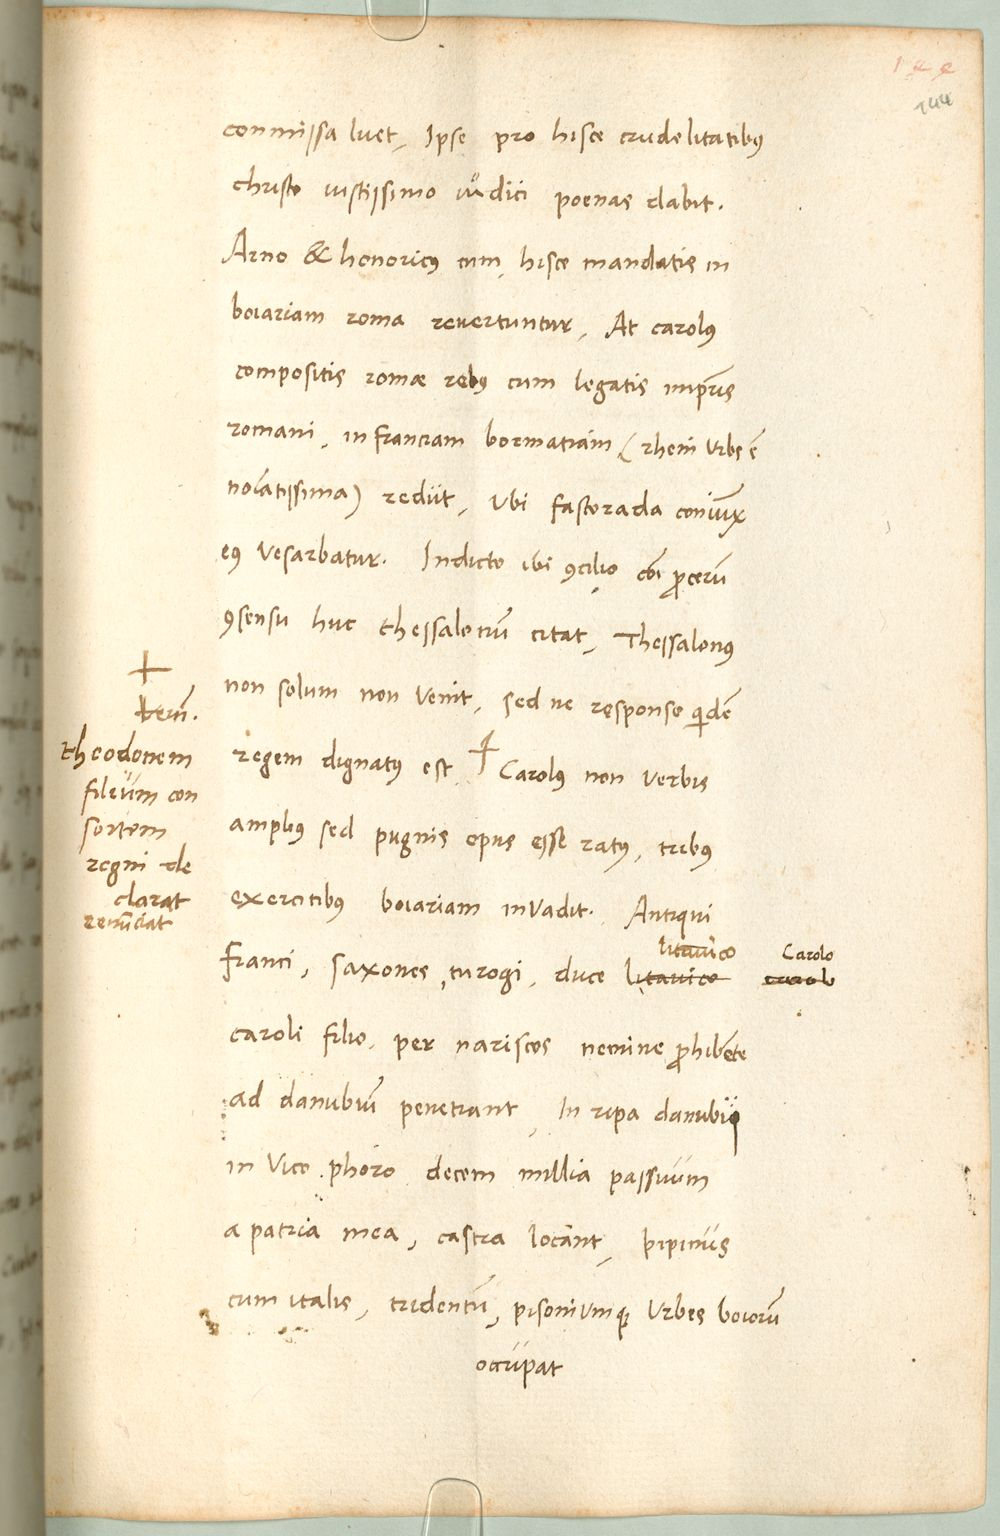 144
commissa luet, Ipse pro hisce crudelitatibꝰ
christo iustissimo iudici poenas dabit.
Arno & honoricꝰ cum hisce mandatis in
boiariam roma revertuntur, At carolꝰ
compositis romæ rebꝰ cum legatis imp̄ris
romani, in franciam bormatiam, (rheni urbs ē
nolatissima) rediit, Ubi fastorada coniūx
eꝰ vesarbatur. Indicto ibi ꝯcilio cōi ꝓcerū
ꝯsensu huc thessalonū citat, Thessalonꝰ
non solum non venit, sed ne responso qidē
regem dignatꝰ est ┼ Carolꝰ non verbis
ampliꝰ sed pugnis opus esse ratꝰ, tribꝰ
exercitibꝰ boiariam invadit. Antiqui
litavico Carolo
franci, saxones, turogi, duce litavico carolo
caroli filio, per nariscos nemine ꝓhibēte
ad danubiū penetrant, In ripa danubij
in vico phoro decem millia passuum
a patria mea, castra locant, pipinus
cum italis, tridentū, pisoniumqꝫ urbes boiorū
occupat
┼
theodonem
filium con
sortem
regni de
clarat
renūciat